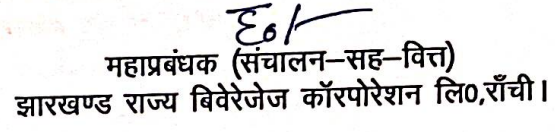 महाप्रबंधक (संचालन–सह–वित्त)
झारखण्ड राज्य बिवेरेजेज कॉरपोरेशन लि0,राँची।